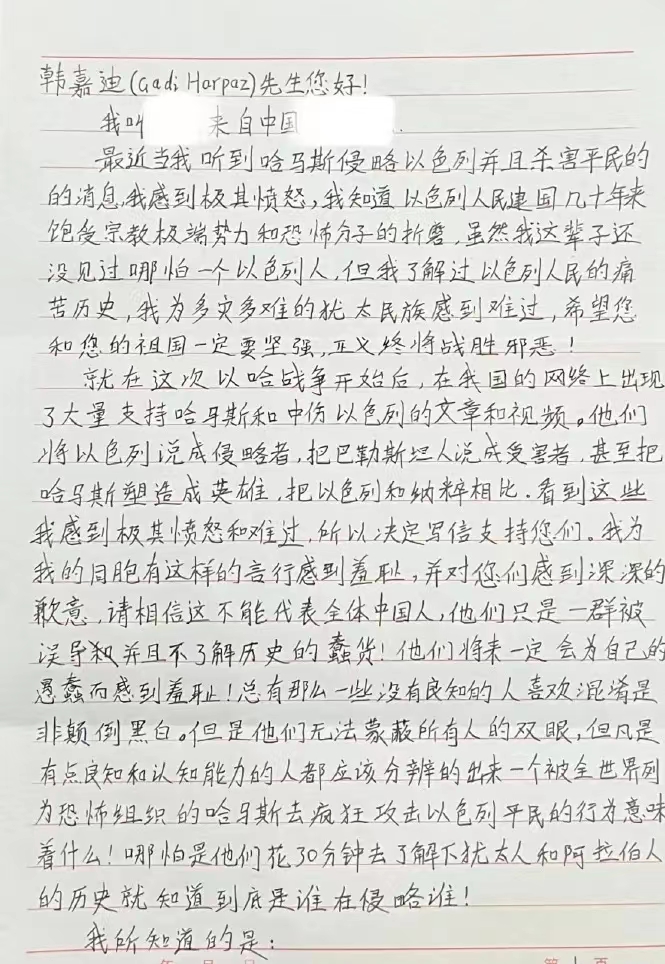 韩嘉迪(Gadi Harpaz)先生您好!
我叫 来自中国
最近当我听到哈马斯侵略以色列并且杀害平民的
的消息,我感到极其愤怒,我知道以色列人民建国几十年来
饱受宗教极端势力和恐怖分子的折磨,虽然我这辈子还
没见过哪怕一个以色列人,但我了解过以色列人民的痛
苦历史,我为多灾多难的犹太民族感到难过,希望您
和您的祖国一定要坚强,正义终将战胜邪恶!
就在这次以哈战争开始后,在我国的网络上出现
了大量支持哈马斯和中伤以色列的文章和视频。他们
将以色列说成侵略者,把巴勒斯坦人说成受害者,甚至把
哈马斯塑造成英雄,把以色列和纳粹相比.看到这些
我感到极其愤怒和难过,所以决定写信支持您们。我为
我的同胞有这样的言行感到羞耻,并对您们感到深深的
歉意,请相信这不能代表全体中国人,他们只是一群被
误导和并且不了解历史的蠢货!他们将来一定会为自己的
愚蠢而感到羞耻!总有那么一些没有良知的人喜欢混淆是
非颠倒黑白。但是他们无法蒙蔽所有人的双眼,但凡是
有点良知和认知能力的人都应该分辨的出来一个被全世界列
为恐怖组织的哈马斯去疯狂攻击以色列平民的行为意味
着什么!哪怕是他们花30分钟去了解下犹太人和阿拉伯人
的历史就知道到底是谁在侵略谁!
我所知道的是:
年 月 日 第 1 页